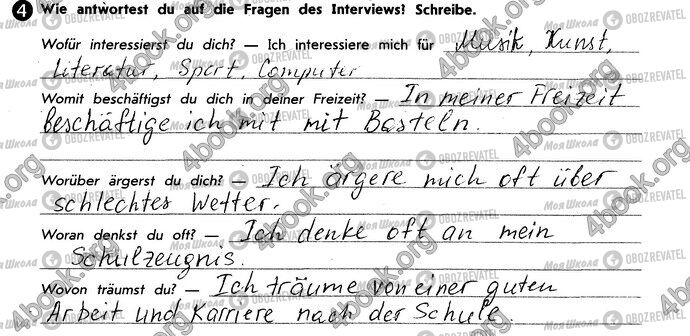 4 Wie antwortest du auf die Fragen des Interviews? Schreibe.
Wofür interessierst du dich? — Ich interessiere mich für Musik, Kunst,
Literatur, Sport, Computer
Womit beschäftigst du dich in deiner Freizeit? — In meiner Freizeit
beschäftige ich mit mit Basteln.
Worüber ärgerst du dich? — Ich ärgere mich oft über
schlechtes Wetter.
Woran denkst du oft? — Ich denke oft an mein
Schulzeugnis.
Wovon träumst du? — Ich träume von einer guten
Arbeit und Karriere nach der Schule.